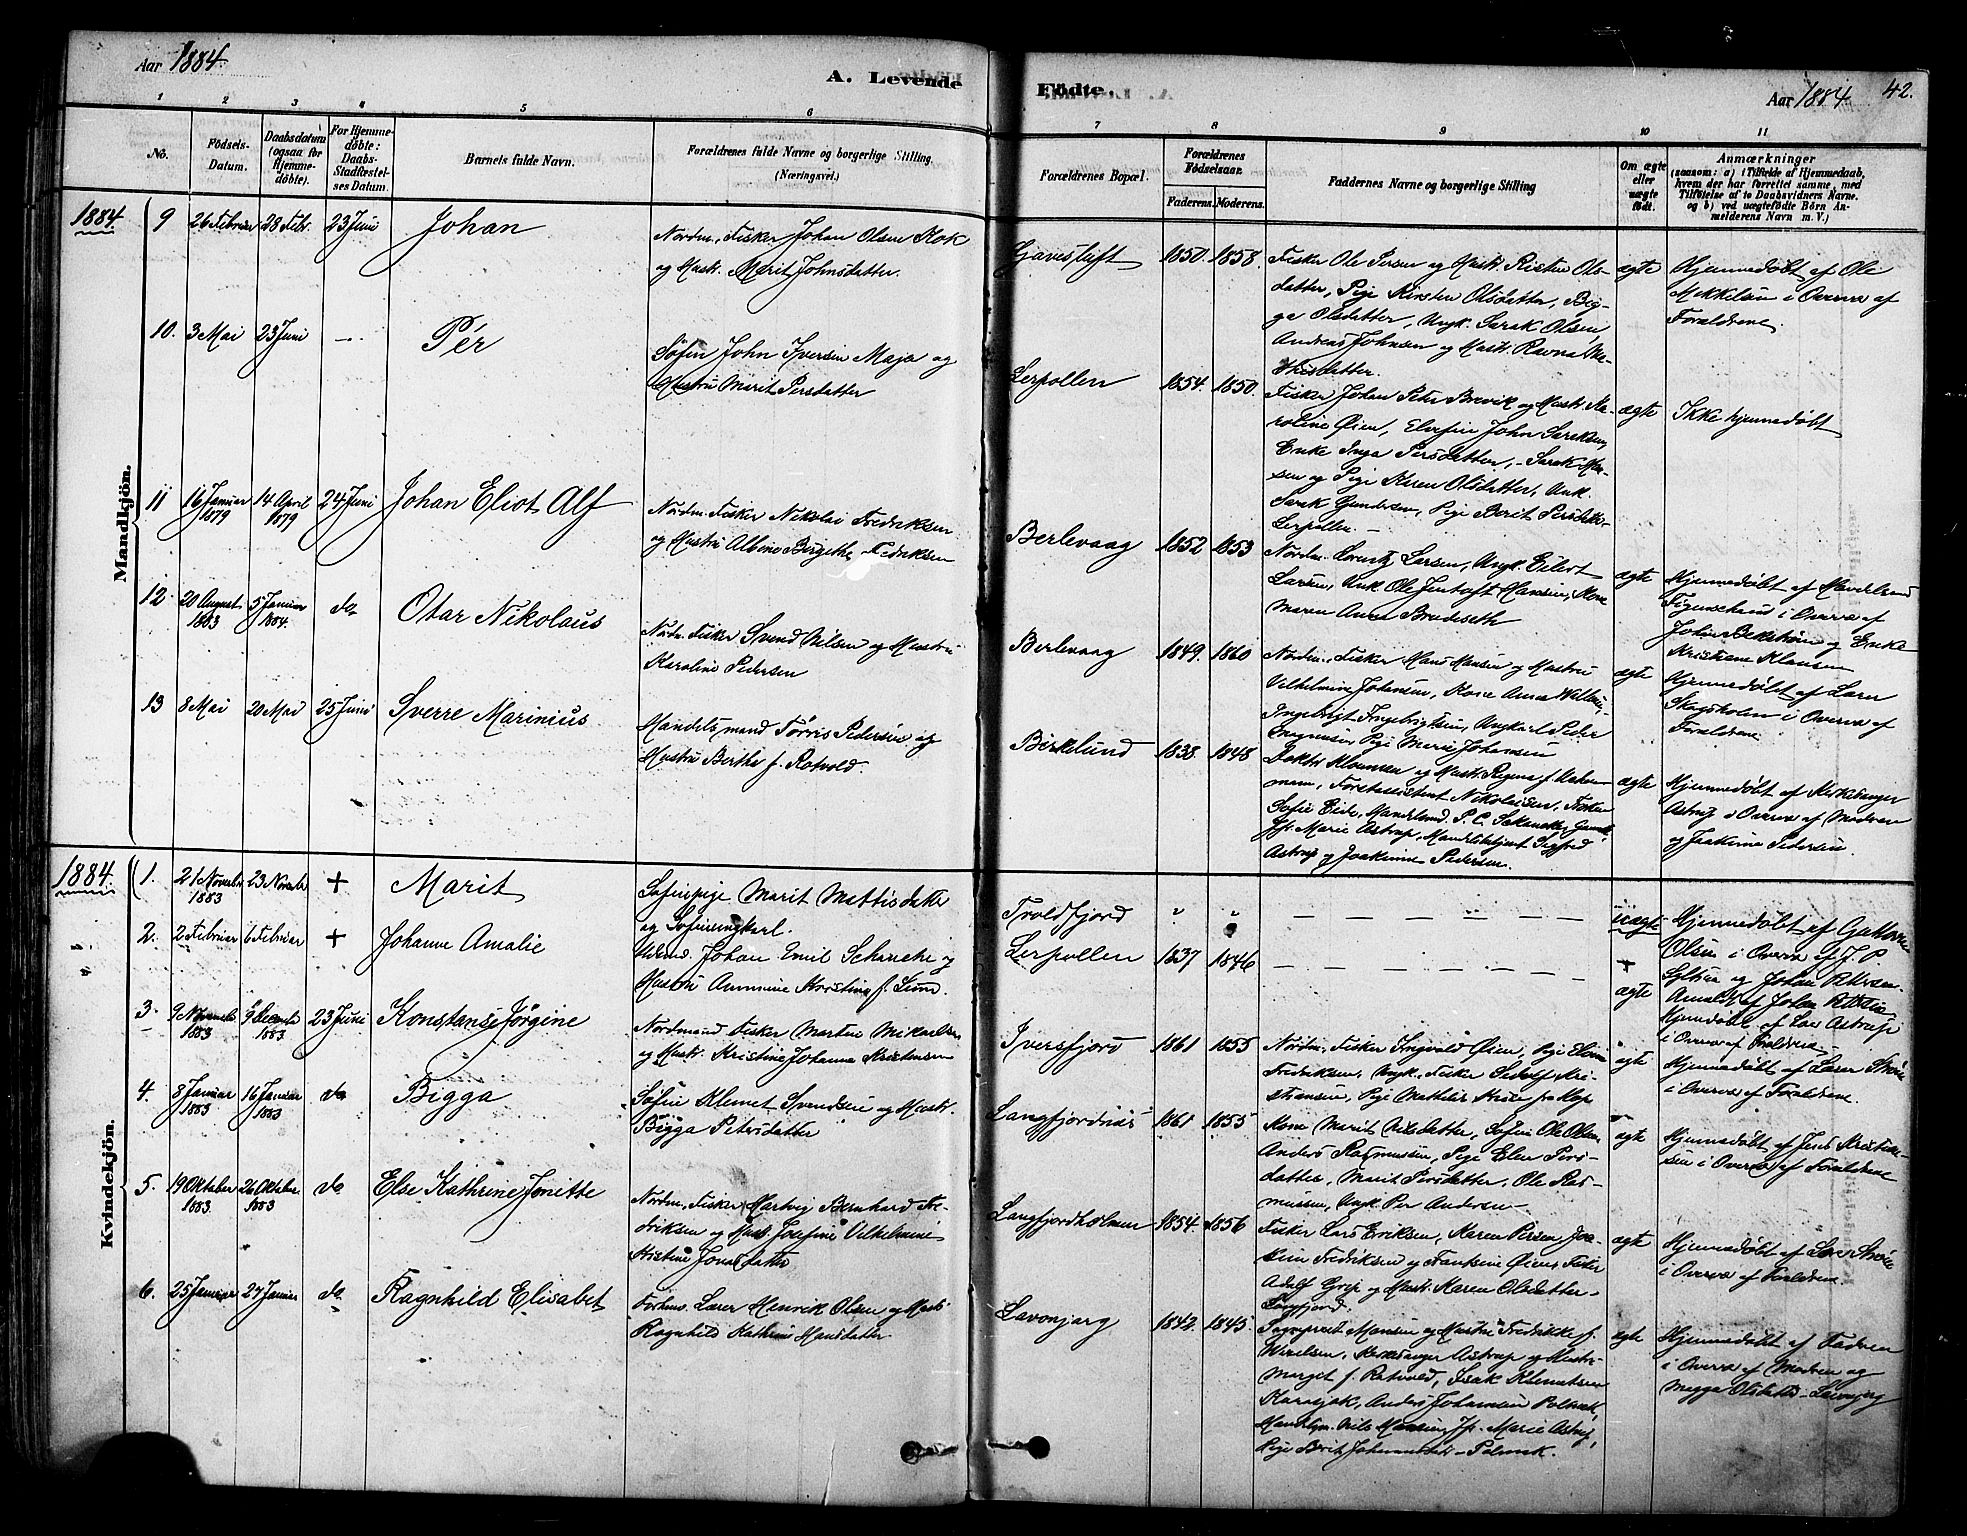 Aar 1884
A. Levende
Fødte.
Aar 1884
42.
1 2 3 4 5 6 7 8 9 10 11
No.
Fødsels-
Datum.
Daabsdatum
(ogsaa for
Hjemme-
døbte).
For Hjemme-
døbte:
Daabs-
Stadfæstel-
ses Datum.
Barnets fulde Navn.
Forældrenes fulde Navne og borgerlige Stilling.
(Næringsvei.)
Forældrenes Bopæl.
Forældrenes
Fødselsaar.
Faderens. Moderens.
Faddernes Navne og borgerlige Stilling
Om ægte
eller
uægte
født.
Anmærkninger
(saasom: a) i Tilfælde af Hjemmedaab,
hvem der har forrettet samme, med
Tilføielse af to Daabsvidners Navne.
og b) ved uægtefødte Børn An-
melderens Navn m. V.)
Mandkjön.
1884. 9 26 Februar 28 Febr. 23 Juni Johan
Nordm. Fisker Johan Olsen Kok
og Hustr. Marit Johnsdatter.
1850. 1858.
Fisker Ole Persen og Hustr. Risten Ols-
datter, Pige Kirsten Olsdatter, Big-
ga Olsdatter, Ungk. Sarak Olsen
Andreas Johnsen og Hustr. Ravna Ma-
thisdatter.
ægte
Hjemmedøbt af Ole
Mikkelsen i Overv af
Forældrene.
10. 3 Mai 23 Juni — Pér
Søfin John Iversen Maja og
Hustru Marit Persdatter
Lerpollen 1854. 1850.
Fisker Johan Peter Brevik og Hustr. Ka-
roline Øien, Elvefin John Saraksen,
Enke Inga Persdatter, Sarak
og Pige Karen Olsdatter, Unk.
Sarak Gundersen, Pige Berit
Lerpollen
ægte
Ikke hjemmedøbt
11 16 Januar 1879 14 April 1879 24 Juni Johan Eliot Alf
Nordm. Fisker Nikolai Fredriksen
og Hustru Albine Bergethe Fredriksen
Berlevaag 1852 1853
Nordm. Lorentz Larsen, Ungk. Eilert
Larsen, Unk. Ole Jentoft Hansen, Kone
Maren Anna Bradeseth
ægte
Hjemmedøbt af Handelsmd
i Overv af
og Enke
Kristiane Klausen
12. 20 August 1883 5 Januar 1884. do Otar Nikolaus
Nordm. Fisker Svend Nilsen og Hustru
Karoline Pedersen
Berlevaag 1849. 1860
Nordm. Fisker Hans Hansen og Hustru
Vilhelmine Johansen, Kone Anna
Ingebrigt Ingebrigtsen, Ungkarl Peder
Pige Marie Johansen
ægte
Hjemmedøbt af Lærer
i Overv af
Forældrene
13 8 Mai 20 Mai 25 Juni Sverre Marinius
Handelsmand Tørris Pedersen og
Hustru Berthe f. Rotvold.
Birkelund 1838. 1848
Doktor og Hustr.
Nikolaisen, Frøken
Sofie Eide, Handelsmd. P. C.
Marie Astrup, Handelsbetjent Sigfred
Astrup og Joakimine Pedersen.
ægte
Hjemmedøbt af Kirkesanger
Astrup i Overv af Modren
og Joakimine Pedersen.
Kvindekjön.
1884. 1. 21 Novemb 1883 23 Novemb + Marit
Søfinpige Marit Mattisdatter
og Søfinungkarl.
Troldfjord " "
— — — — — —
uægte
Hjemmedøbt af
Olsen i Overv af J. P.
og Johan Pettersen.
Anmeldt af Johan
2. 2 Februar 6 Februar + Johanne Amalie
Johan Emil Schanche og
Hustru Anmine Kristine f. Lund.
Lerpollen 1837 1846
— — — — — —
+
ægte
Hjemdøbt af Lær Astrup
i Overv af Forældrene.
3. 9 Novemb 1883 9 Decemb 1883 23 Juni Konstanse Jørgine
Nordmand Fisker Martin Mikaelsen
og Hustr. Kristine Johanna Kristensen
Iversfjord 1861 1855
Nordm. Fisker Ingvald Øien, Pige
Fredriksen, Ungk. Fisker Kri-
stiansen, Pige Mathilde
ægte
Hjemmedøbt af Lærer
i Overv af Forældrene.
4. 8 Januar 1883 16 Januar 1883 do Bigga
Søfin Klemet Svendsen og Hustr.
Bigga Petersdatter
Langfjordnæs 1861 1855
Kone Marit Nilsdatter, Søfin Ole Olsen
Anders Rasmussen, Pige Elen Pers-
datter, Marit Persdatter, Ole Ras-
mussen, Ungk. Per Andersen
ægte
Hjemmedøbt af Jens Kristian-
sen i Overv af Forældrene
5. 19 Oktober 1883 26 Oktober 1883 do Else Kathrine Jonette
Nordm. Fisker Hartvig Bernhard Fre-
driksen og Hust. Josefine Vilhelmine
Kristine Jonasdatter
Langfjordholmen 1854. 1856
Fisker Lars Eriksen, Karen Persen, Joa-
kim Fredriksen og Frantsine Øien, Fisker
Adolf Grip og Hustr. Karen Olsdatter
Langfjord.
ægte
Hjemmedøbt af Lærer
i Overv af Forældrene.
6. 25 Januar 27 Januar do Ragnhild Elisabet
Forhenv. Lærer Henrik Olsen og Hustr.
Ragnhild Kathrine Hansdatter
Lavonjarg 1842. 1845.
Sogneprest Hansen og Hustru Fredrikke f.
Kirkesanger Astrup og Hustru
Marget f. Rotvold, Isak Klemetsen
Karasjok, Anders Johansen Polmak,
Handlsm. Nils Hansen, Marie Astrup,
Pige Berit Polmak.
ægte
Hjemmedøbt af Fadren
i Overv af Modren og
Magga Olsdatter Lavonjarg